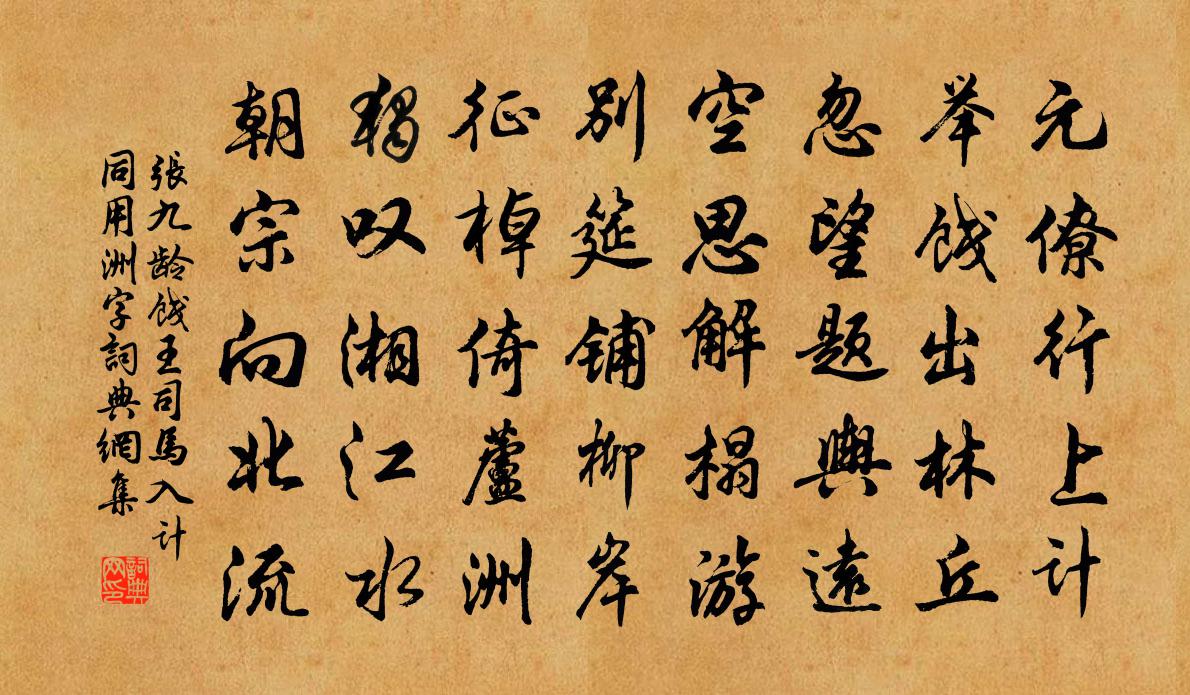 元僚行上计
举饯出林丘
忽望题舆遠
空思解榻游
别筵铺柳岸
征棹倚蘆洲
独叹湘江水
朝宗向北流
張九龄饯王司馬入计
同用洲字詞典網集
詞典网印